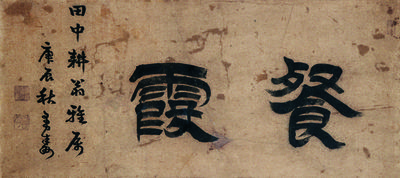 餐霞
田中耕翁雅属
庚辰秋